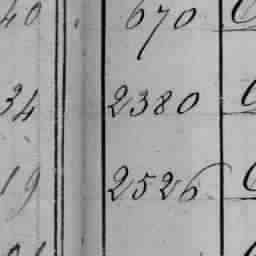 40 670
34 2380
19 2526